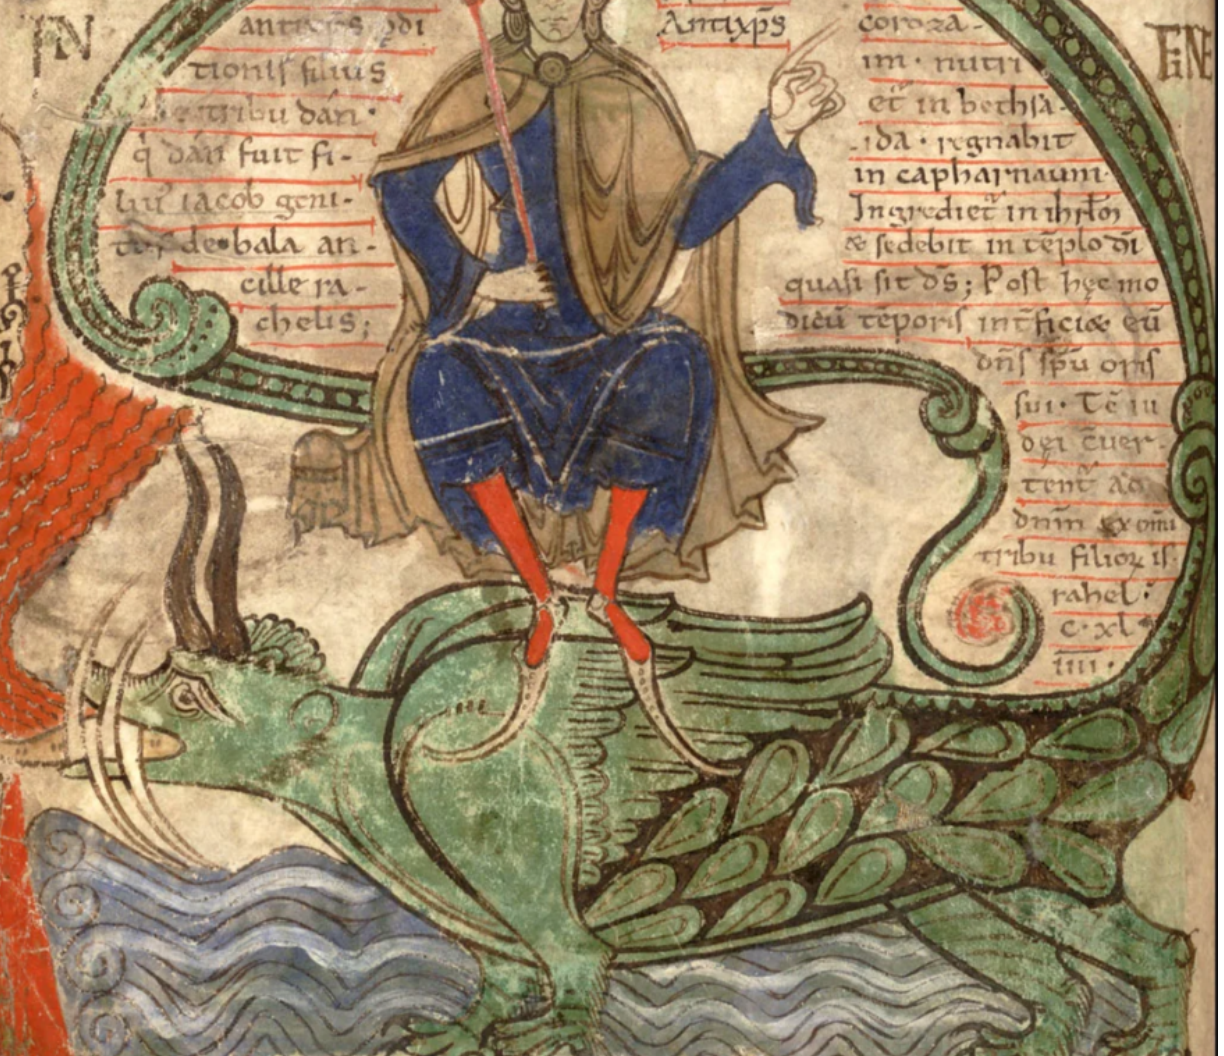 tionis filius
tribu dan ·
q̇ dan fuit fi-
liu' iacob geni-
de bala an-
cille ra-
chelis;
Antixp̄s
coroza-
im · nutri
et̄ in bethsa-
ida · regnabit
in capharnaum ·
Ingrediet̄ in ihrl̄m
& sedebit in tēplo dī
quasi sit d̄s; Post hęc mo
dicū tēporis int̄ficiet eū
dn̄s sp̄u oris
sui · Tē iu
dei
tent̄ ad
dn̄m
tribu filioꝝ is-
rahel ·
c · xl
iiii ·